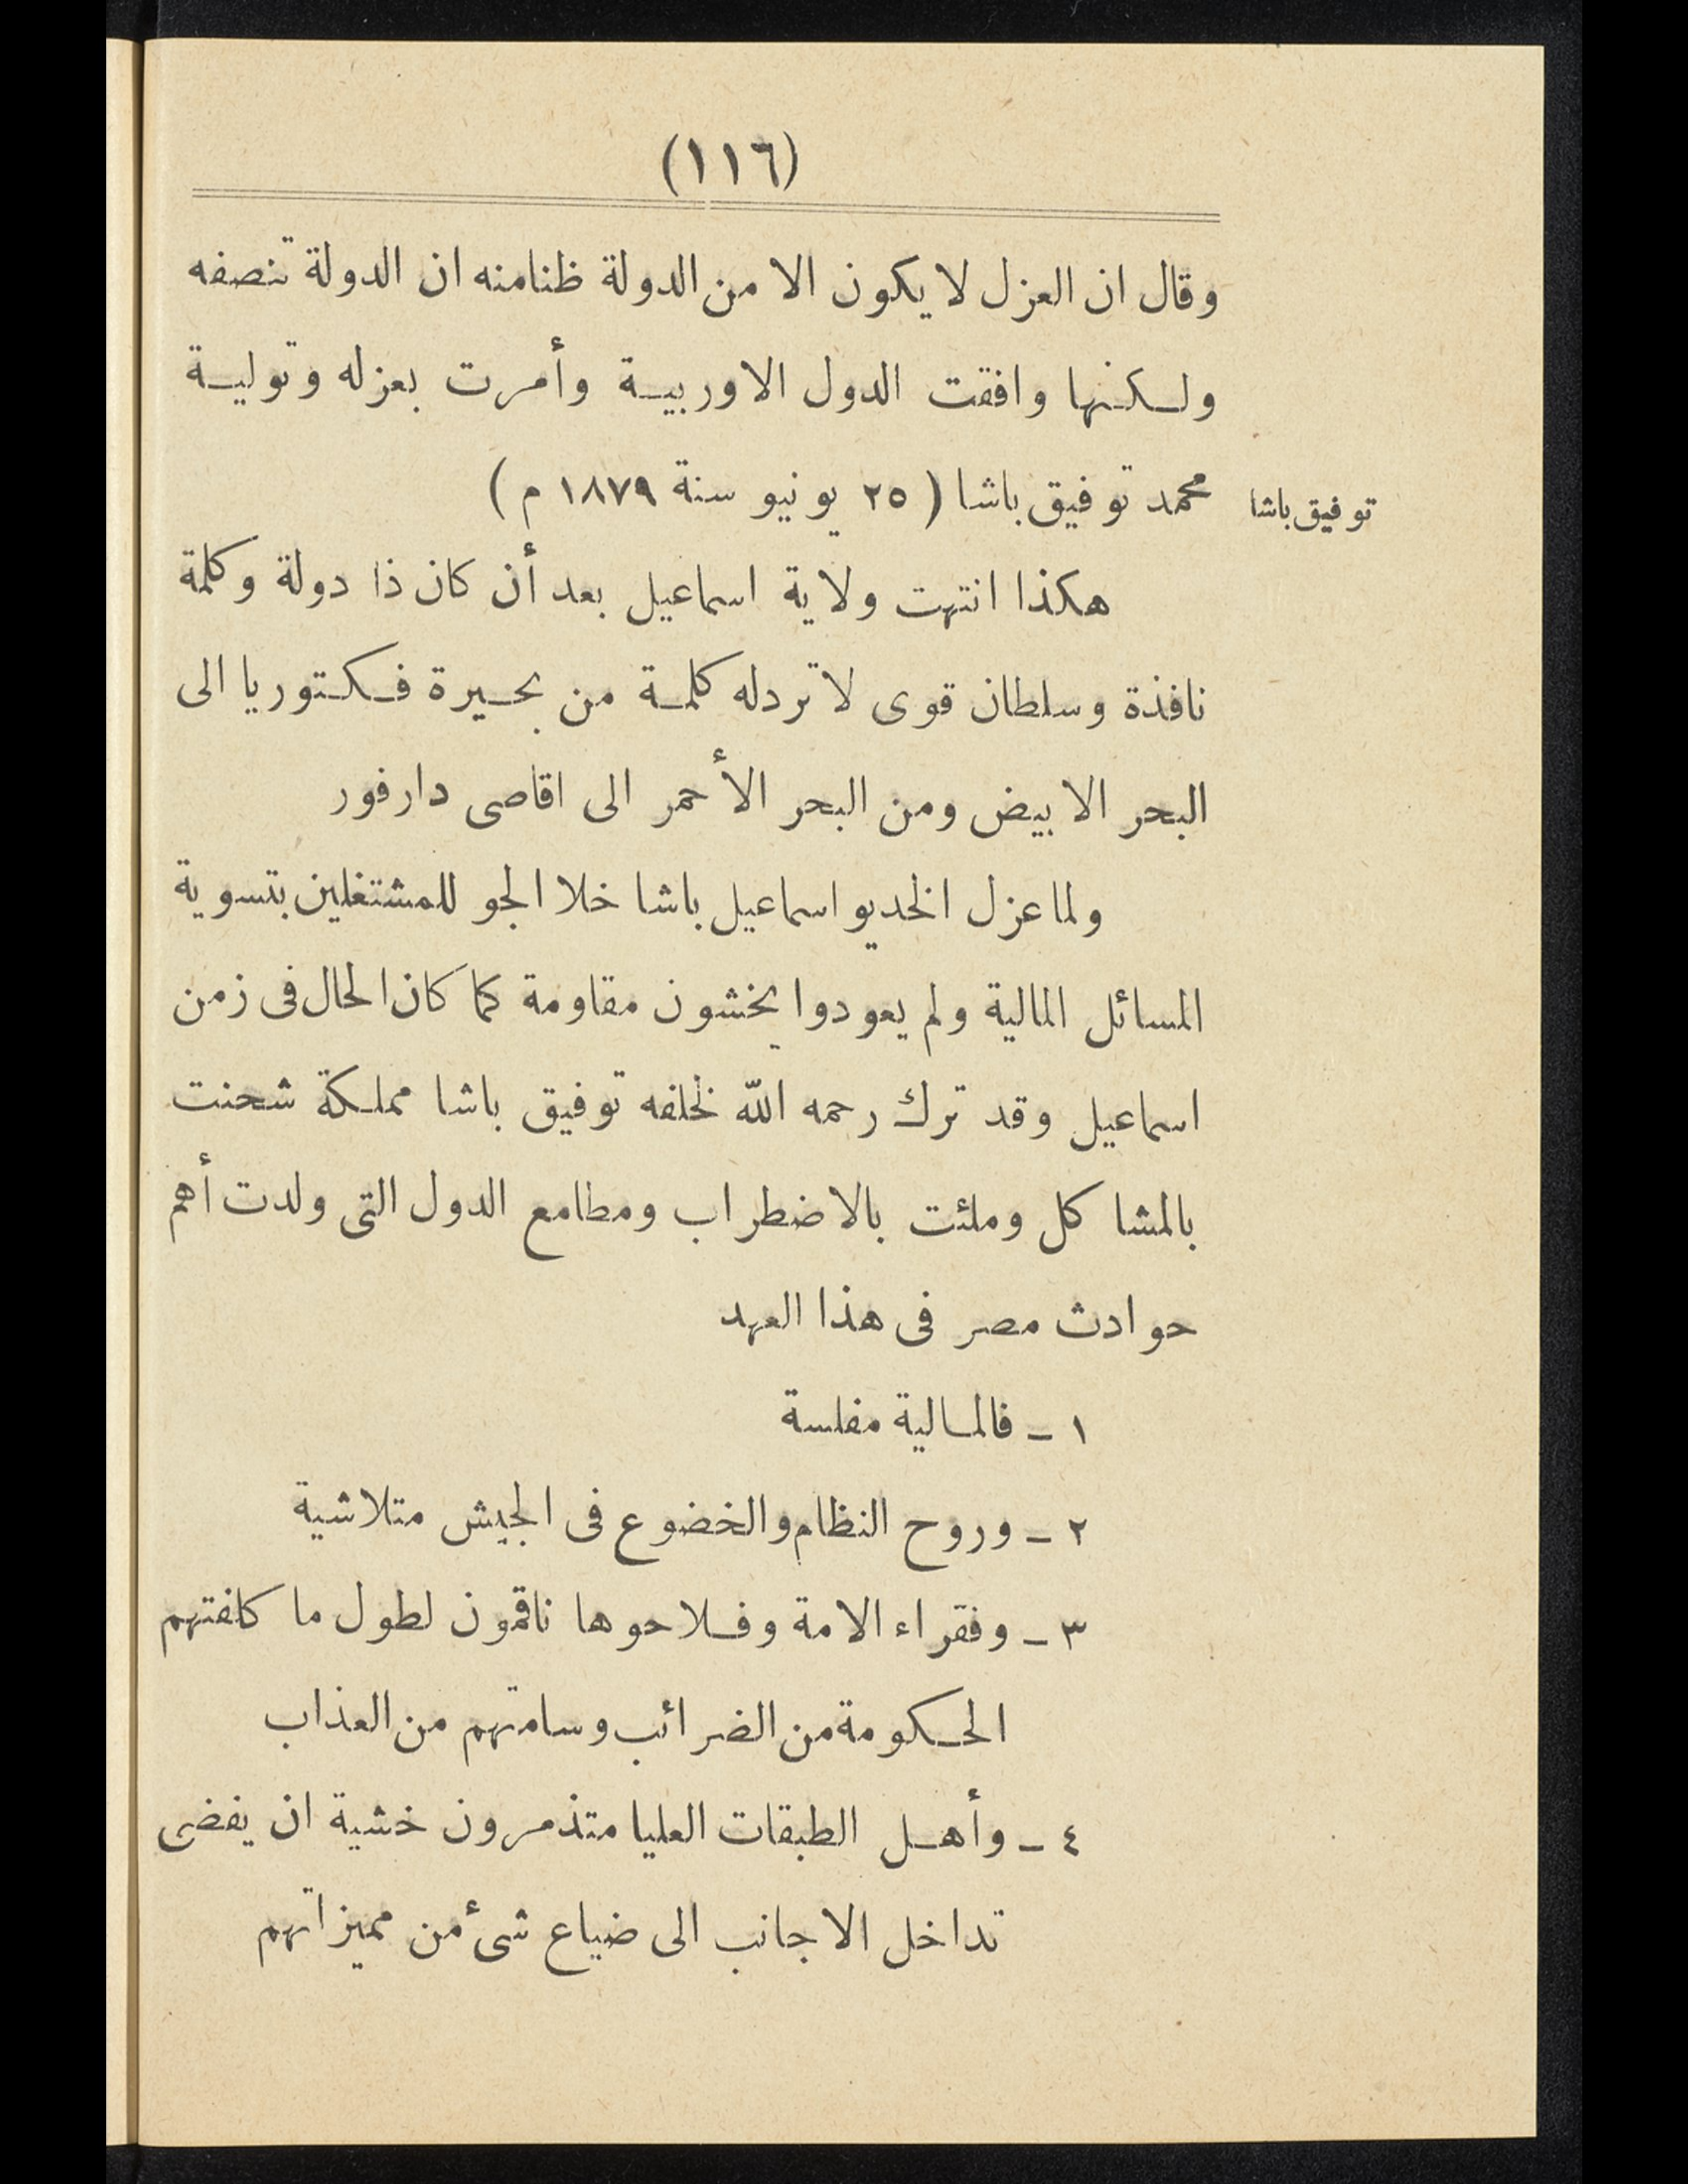 (١١٦)
وقال ان العزل لا يكون الا من الدولة ظنا منه ان الدولة تنصفه
ولكنها وافقت الدول الاوربية وأمرت بعزله وتولية
توفيق باشا
محمد توفيق باشا ( ٢٥ يونيو سنة ١٨٧٩ م )
هكذا انتهت ولاية اسماعيل بعد أن كان ذا دولة وكلمة
نافذة وسلطان قوى لا ترد له كلمة من بحيرة فكتوريا الى
البحر الابيض ومن البحر الأحمر الى اقاصى دارفور
ولما عزل الخديو اسماعيل باشا خلا الجو للمشتغلين بتسوية
المسائل المالية ولم يعودوا يخشون مقاومة كما كان الحال فى زمن
اسماعيل وقد ترك رحمه الله لخلفه توفيق باشا مملكة شحنت
بالمشاكل وملئت بالاضطراب ومطامع الدول التى ولدت أهم
حوادث مصر فى هذا العهد
١ ـ فالمالية مفلسة
٢ ـ وروح النظام والخضوع فى الجيش متلاشية
٣ ـ وفقراء الامة وفلاحوها ناقمون لطول ما كلفتهم
الحكومة من الضرائب وسامتهم من العذاب
٤ ـ وأهل الطبقات العليا متذمرون خشية ان يفضى
تداخل الاجانب الى ضياع شئ من مميزاتهم